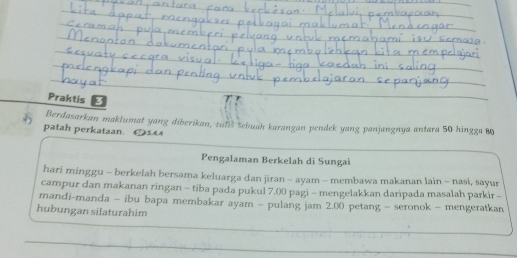 antara cara berkesan. Melalui pembacaan
kita dapat mengakses pelbagai maklumat. Mendengar
ceramah pula memberi peluang untuk memahami isu semasa.
Menonton dokumentari pula membolehkan kita mempelajari
sesuatu secara visual. Ketiga-tiga kaedah ini saling
melengkapi dan penting untuk pembelajaran sepanjang
hayat
Praktis 3
Berdasarkan maklumat yang diberikan, tulis sebuah karangan pendek yang panjangnya antara 50 hingga 80
patah perkataan.
Pengalaman Berkelah di Sungai
hari minggu – berkelah bersama keluarga dan jiran – ayam – membawa makanan lain – nasi, sayur
campur dan makanan ringan – tiba pada pukul 7.00 pagi – mengelakkan daripada masalah parkir –
mandi-manda – ibu bapa membakar ayam – pulang jam 2.00 petang – seronok – mengeratkan
hubungan silaturahim